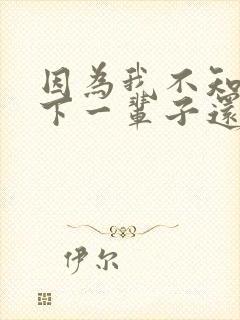 因為我不知
下一輩子還
伊尔